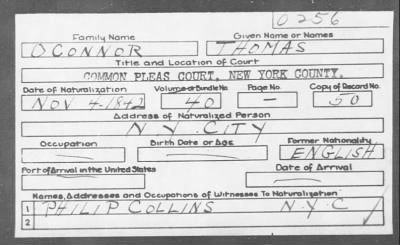 O256
Family Name Given Name or Names
O'CONNOR THOMAS
Title and Location of Court
COMMON PLEAS COURT, NEW YORK COUNTY.
Date of Naturalization Volume or Bundle No. Page No. Copy of Record No.
NOV 4-1842 40 — 50
Address of Naturalized Person
N Y CITY
Occupation Birth Date or Age Former Nationality
— — ENGLISH
Port of Arrival in the United States Date of Arrival
— —
Names, Addresses and Occupations of Witnesses To Naturalization
1 PHILIP COLLINS N.Y.C
2